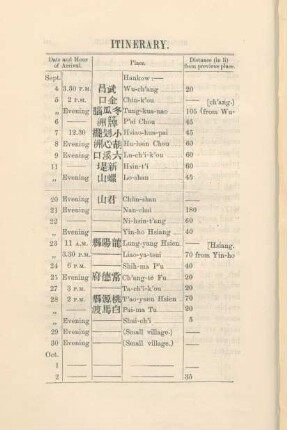 ITINERARY.
Date and Hour of Arrival. Place. Distance (in li) from previous place.
Sept. Hankow :—
4 3.30 P.M. 武昌 Wu-ch'ang 20
5 2 P.M. 金口 Chin-k'ou — [ch'ang.)
„ Evening Tung-kua-nao 105 (from Wu-
6 — P'ai Chou 45
7 12.30 Hsiao-hua-pai 45
8 Evening Hu-hsin Chou 60
9 Evening 六溪口 Lu-ch'i-k'ou 60
11 — 新堤 Hsin-t'i 60
„ Evening 螺山 Lo-shan 45
20 Evening 君山 Chün-shan —
21 Evening Nan-chui 180
22 Evening Ni-hsin-t'ang 60
„ Evening Yin-ho Hsiang 40
23 11 A.M. 龍陽縣 Lung-yang Hsien — [Hsiang.
„ 3.30 P.M. Liao-ya-tsui 70 from Yin-ho
24 6 P.M. Shih-ma P'u 40
25 Evening 常德府 Ch'ang-tê Fu 20
27 3 P.M. Ta-ch'i-k'ou 20
28 2 P.M. 桃源縣 T'ao-yuen Hsien 70
„ — 白馬渡 Pai-ma Tu 20
„ — Shui-ch'i 5
29 Evening (Small village.) —
30 Evening (Small village.) —
Oct.
1 — —
2 — 35